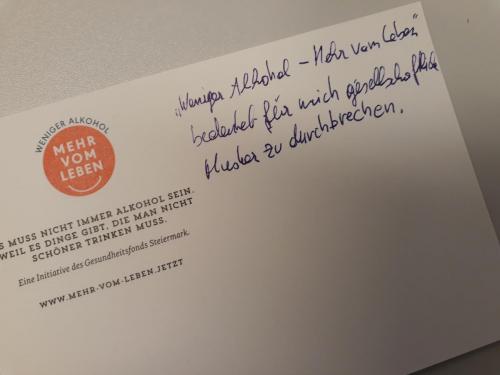 WENIGER ALKOHOL
MEHR
VOM
LEBEN
S MUSS NICHT IMMER ALKOHOL SEIN.
WEIL ES DINGE GIBT, DIE MAN NICHT
SCHÖNER TRINKEN MUSS.
Eine Initiative des Gesundheitsfonds Steiermark.
WWW.MEHR-VOM-LEBEN.JETZT
„Weniger Alkohol – Mehr vom Leben"
bedeutet für mich gesellschaftliche
Muster zu durchbrechen.